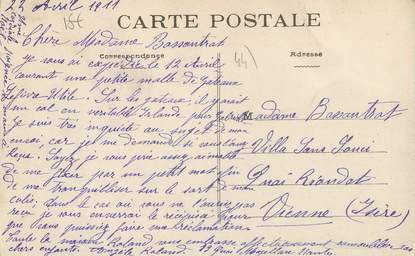 22 Avril 1911
CARTE POSTALE
Chère Madame Bassontrat
Correspondance
Adresse
je vous ai expédié le 12 Avril
courant une petite malle de gâteaux
Lefèvre-Utile. Sur les gateaux, il y avait
un col en véritable Irlande pour
Je suis très inquiète au sujet de mon
envoi, car je me demande si vous l'avez
reçu. Soyez je vous prie assez aimable
de me fixer par un petit mot afin
de me tranquilliser sur le sort de mon
colis. Dans le cas où vous ne l'auriez pas
reçu je vous enverrai le récépissé pour
que vous puissiez faire une réclamation.
Toute la maison Roland vous embrasse affectueusement
chers enfants. Angèle Roland. Nantes
44
Madame Bassontrat
Villa Sans Souci
Quai Riondet
Vienne (Isère)